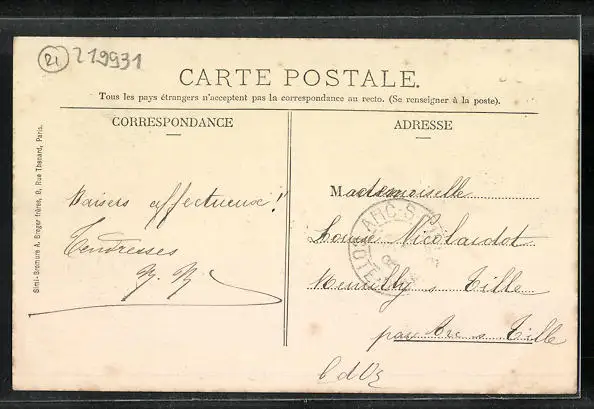 21 219931
CARTE POSTALE.
Tous les pays étrangers n'acceptent pas la correspondance au recto. (Se renseigner à la poste).
CORRESPONDANCE
ADRESSE
Simi-Bromure A. Breger frères, 9, Rue Thénard, Paris.
Baisers affectueux!
Tendresses
Mademoiselle
Louise Nicolardot
s Tille
par Arc s Tille
C d'Or
ARC S
CÔTE